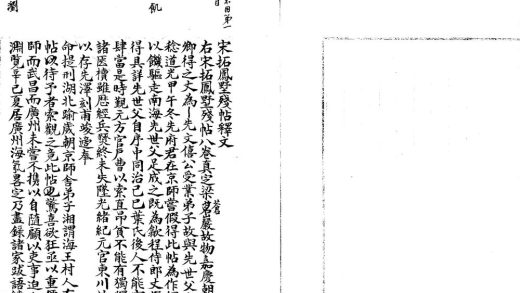 宋拓鳳墅殘帖釋文
右宋拓鳳墅殘帖八卷真定梁蒼巖故物嘉慶朝
鄉得之文為先文僖公受業弟子故與先世父
稔道光甲午冬先府君在京師嘗假得此帖為作
以饑驅走南海先世父足成之既為歙程侍郎丈
得具詳先世父自序中同治己巳葉氏後人不能
肆當是時觀元方官戶曹以索直昂貴不能有獨
諸医櫝雖歷經兵燹終未失墜光緒紀元官東川
以存先澤刻甫竣遂奉
命提刑湖北踰歲朝京師舍弟子湘謂海王村人有
帖以待予者索觀之竟此帖也驚喜欲狂亟以重
師而武昌而廣州未嘗不攜以自隨顧以吏事迫
淵覽辛巳夏居廣州海氛畧定乃盡錄諸家跋語